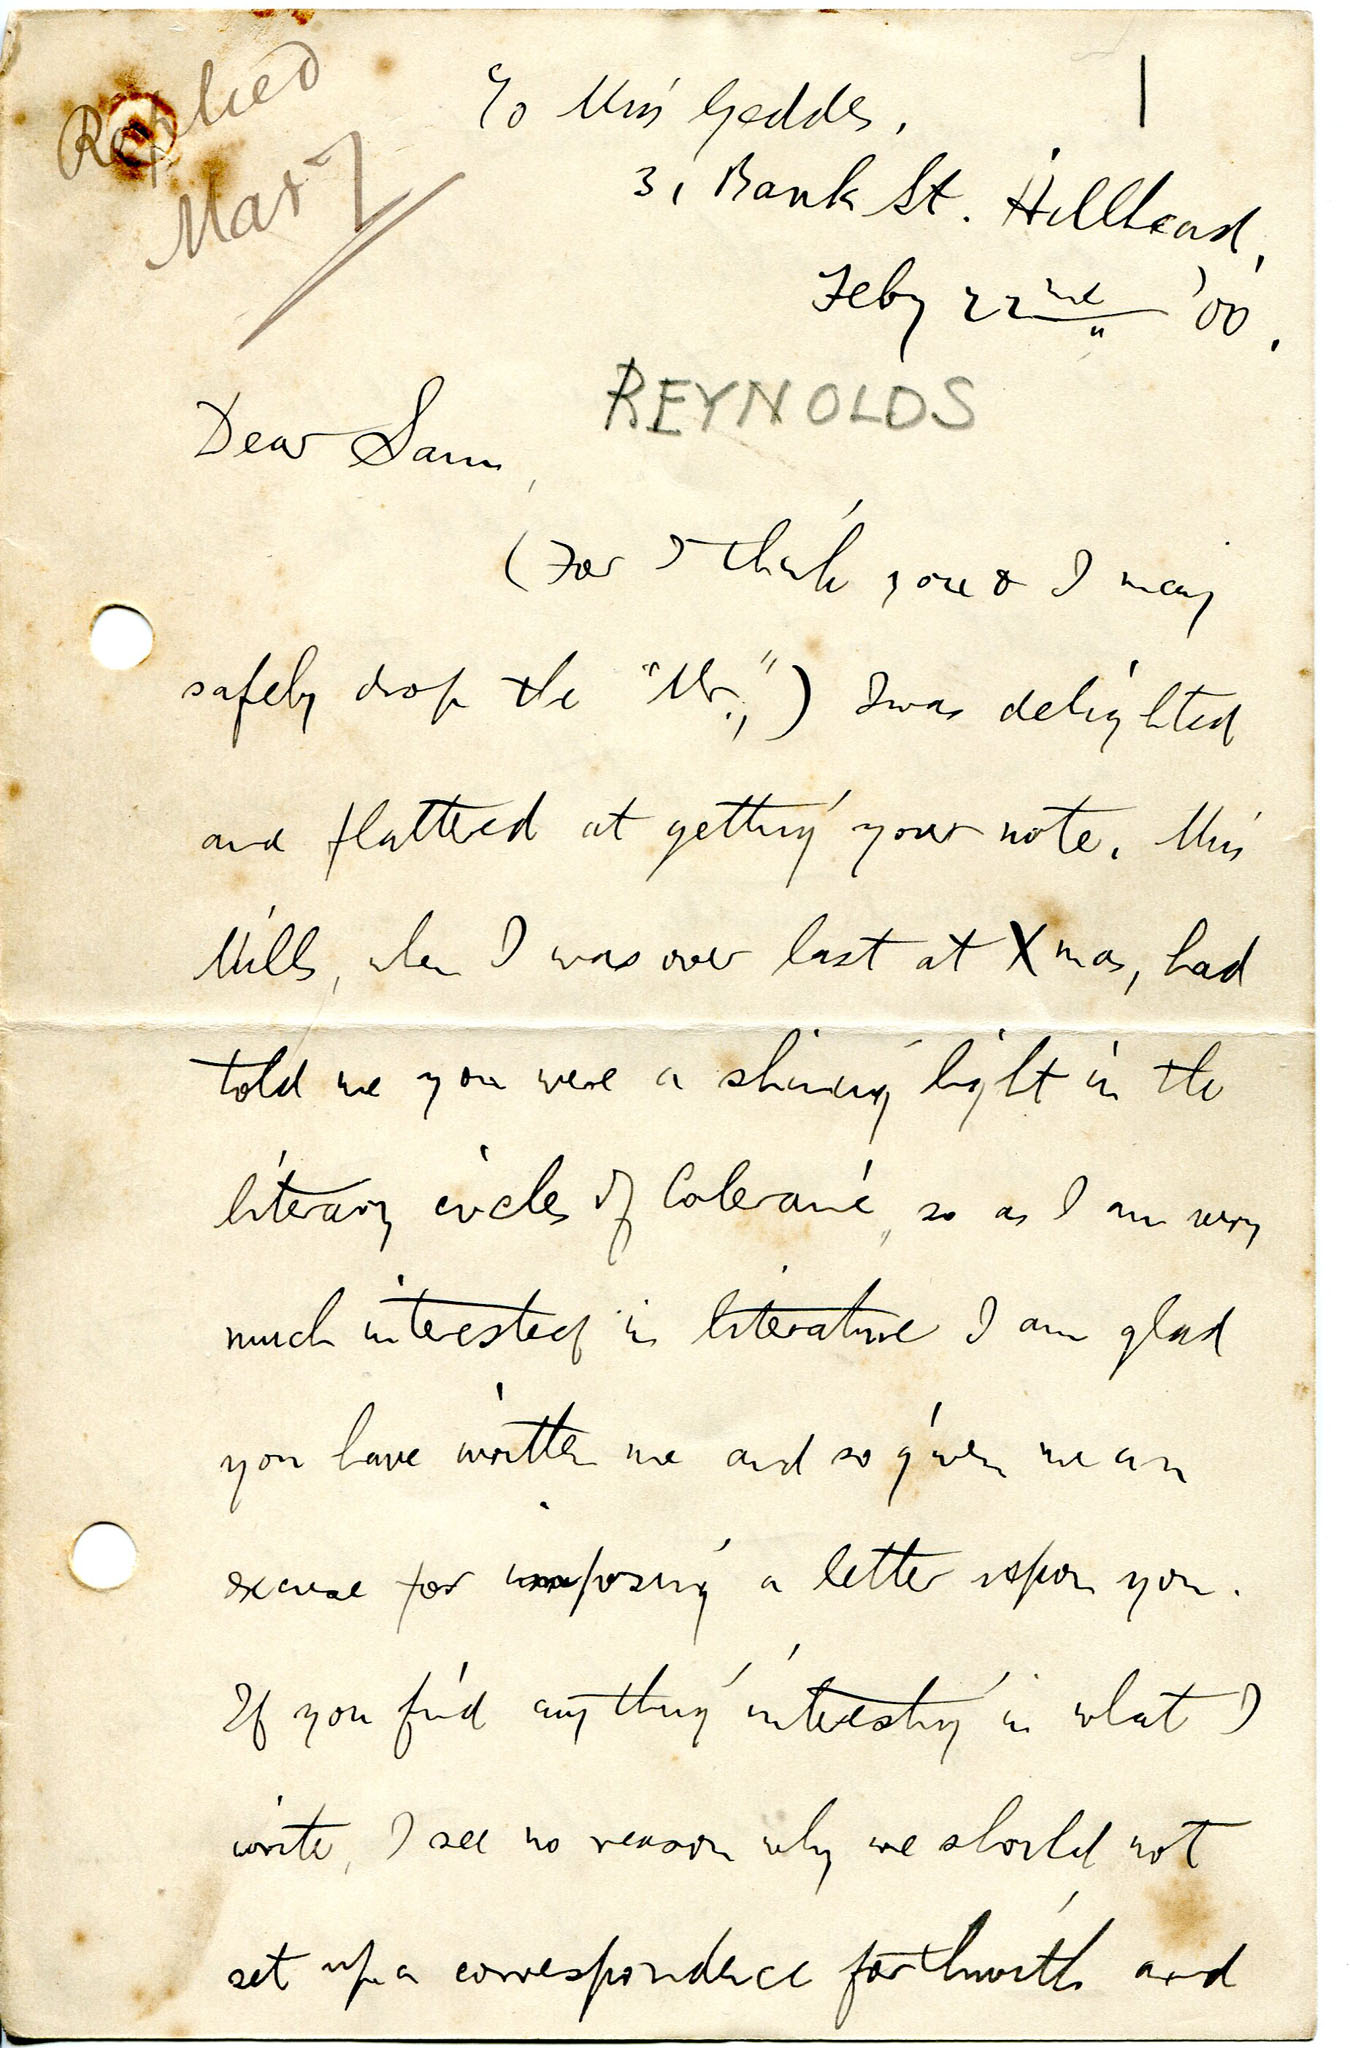 Replied
Mar 7
To Miss Geddes,
31 Bank St. Hillhead,
Feby 22nd '00.
REYNOLDS
Dear Sam,
(For I think you & I may
safely drop the "Mr.,") I was delighted
and flattered at getting your note. Miss
Mills, when I was over last at Xmas, had
told me you were a shining light in the
literary circles of Coleraine, so as I am very
much interested in literature I am glad
you have written me and so given me an
excuse for imposing a letter upon you.
If you find anything interesting in what I
write, I see no reason why we should not
set up a correspondence forthwith and